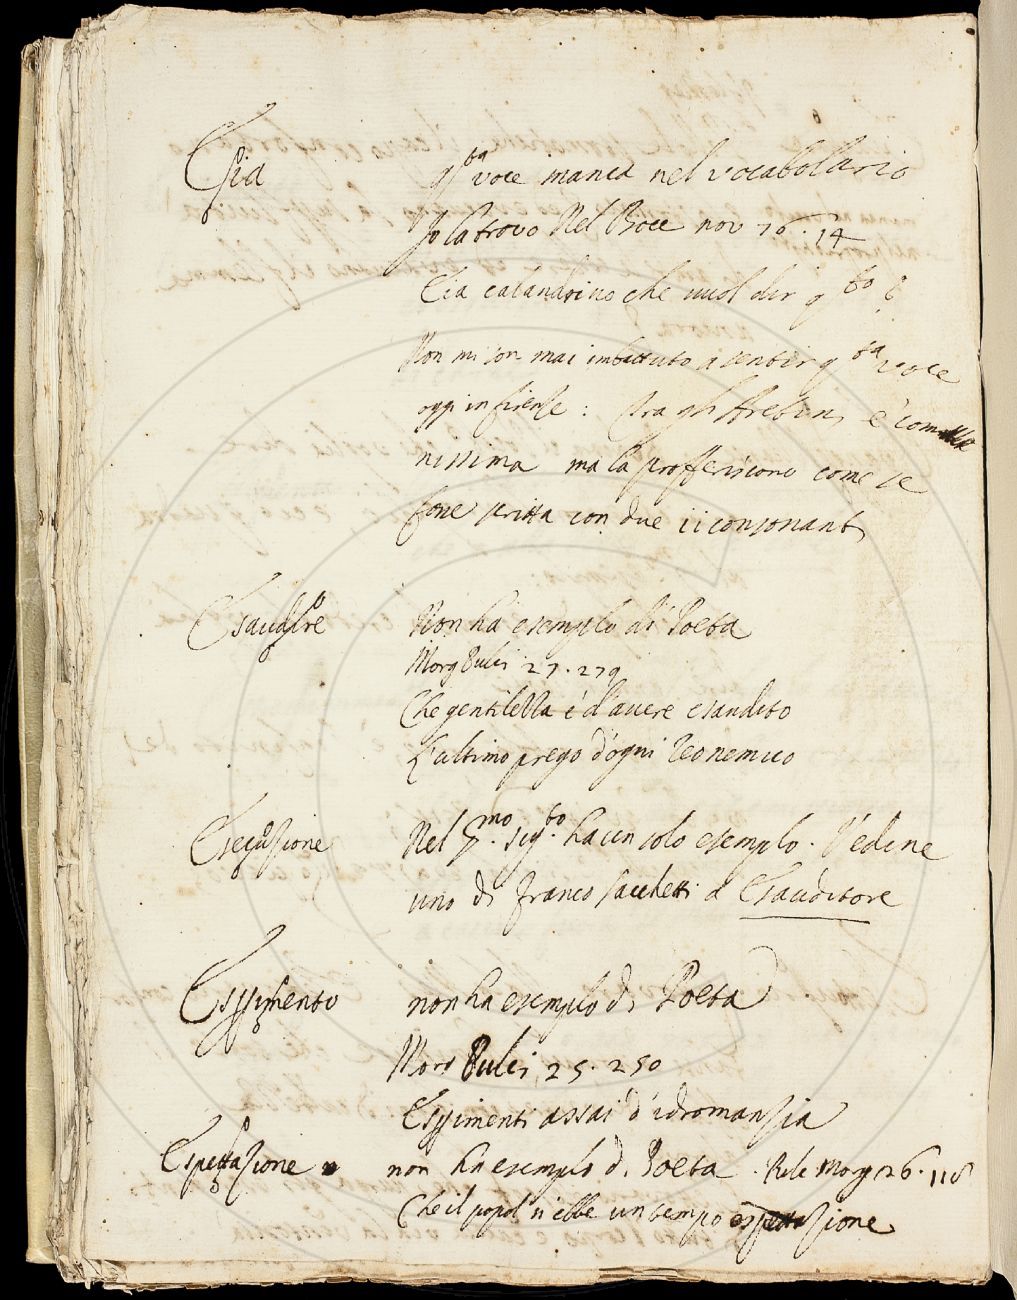 Eia qsta voce manca nel vocabollario
Jo la trovo Nel Bocc nov 76. 14
Eia calandrino che vuol dir qsto è
Non mi son mai imbattuto a sentir qsta voce
oggi in firenze: tra gli Aretini è comu
nissima ma la profferiscono come se
fone scritta con due ii consonanti
Esaudire Non ha esempio di Poeta
Morg Pulci 27. 279
Che gentilezza è d'avere esaudito
L'ultimo prego d'ogni
Esecuzione Nel 5mo. sigto. ha un solo esempio. Vedine
uno di franco sacchetti a Esauditore
Esperimento non ha esempio di Poeta
Morg Pulci 25. 250
Esperimenti assai d'idromanzia
Espettazione non ha esempio di Poeta. Morg 26. 118
Che il popol n'ebbe un tempo espettazione